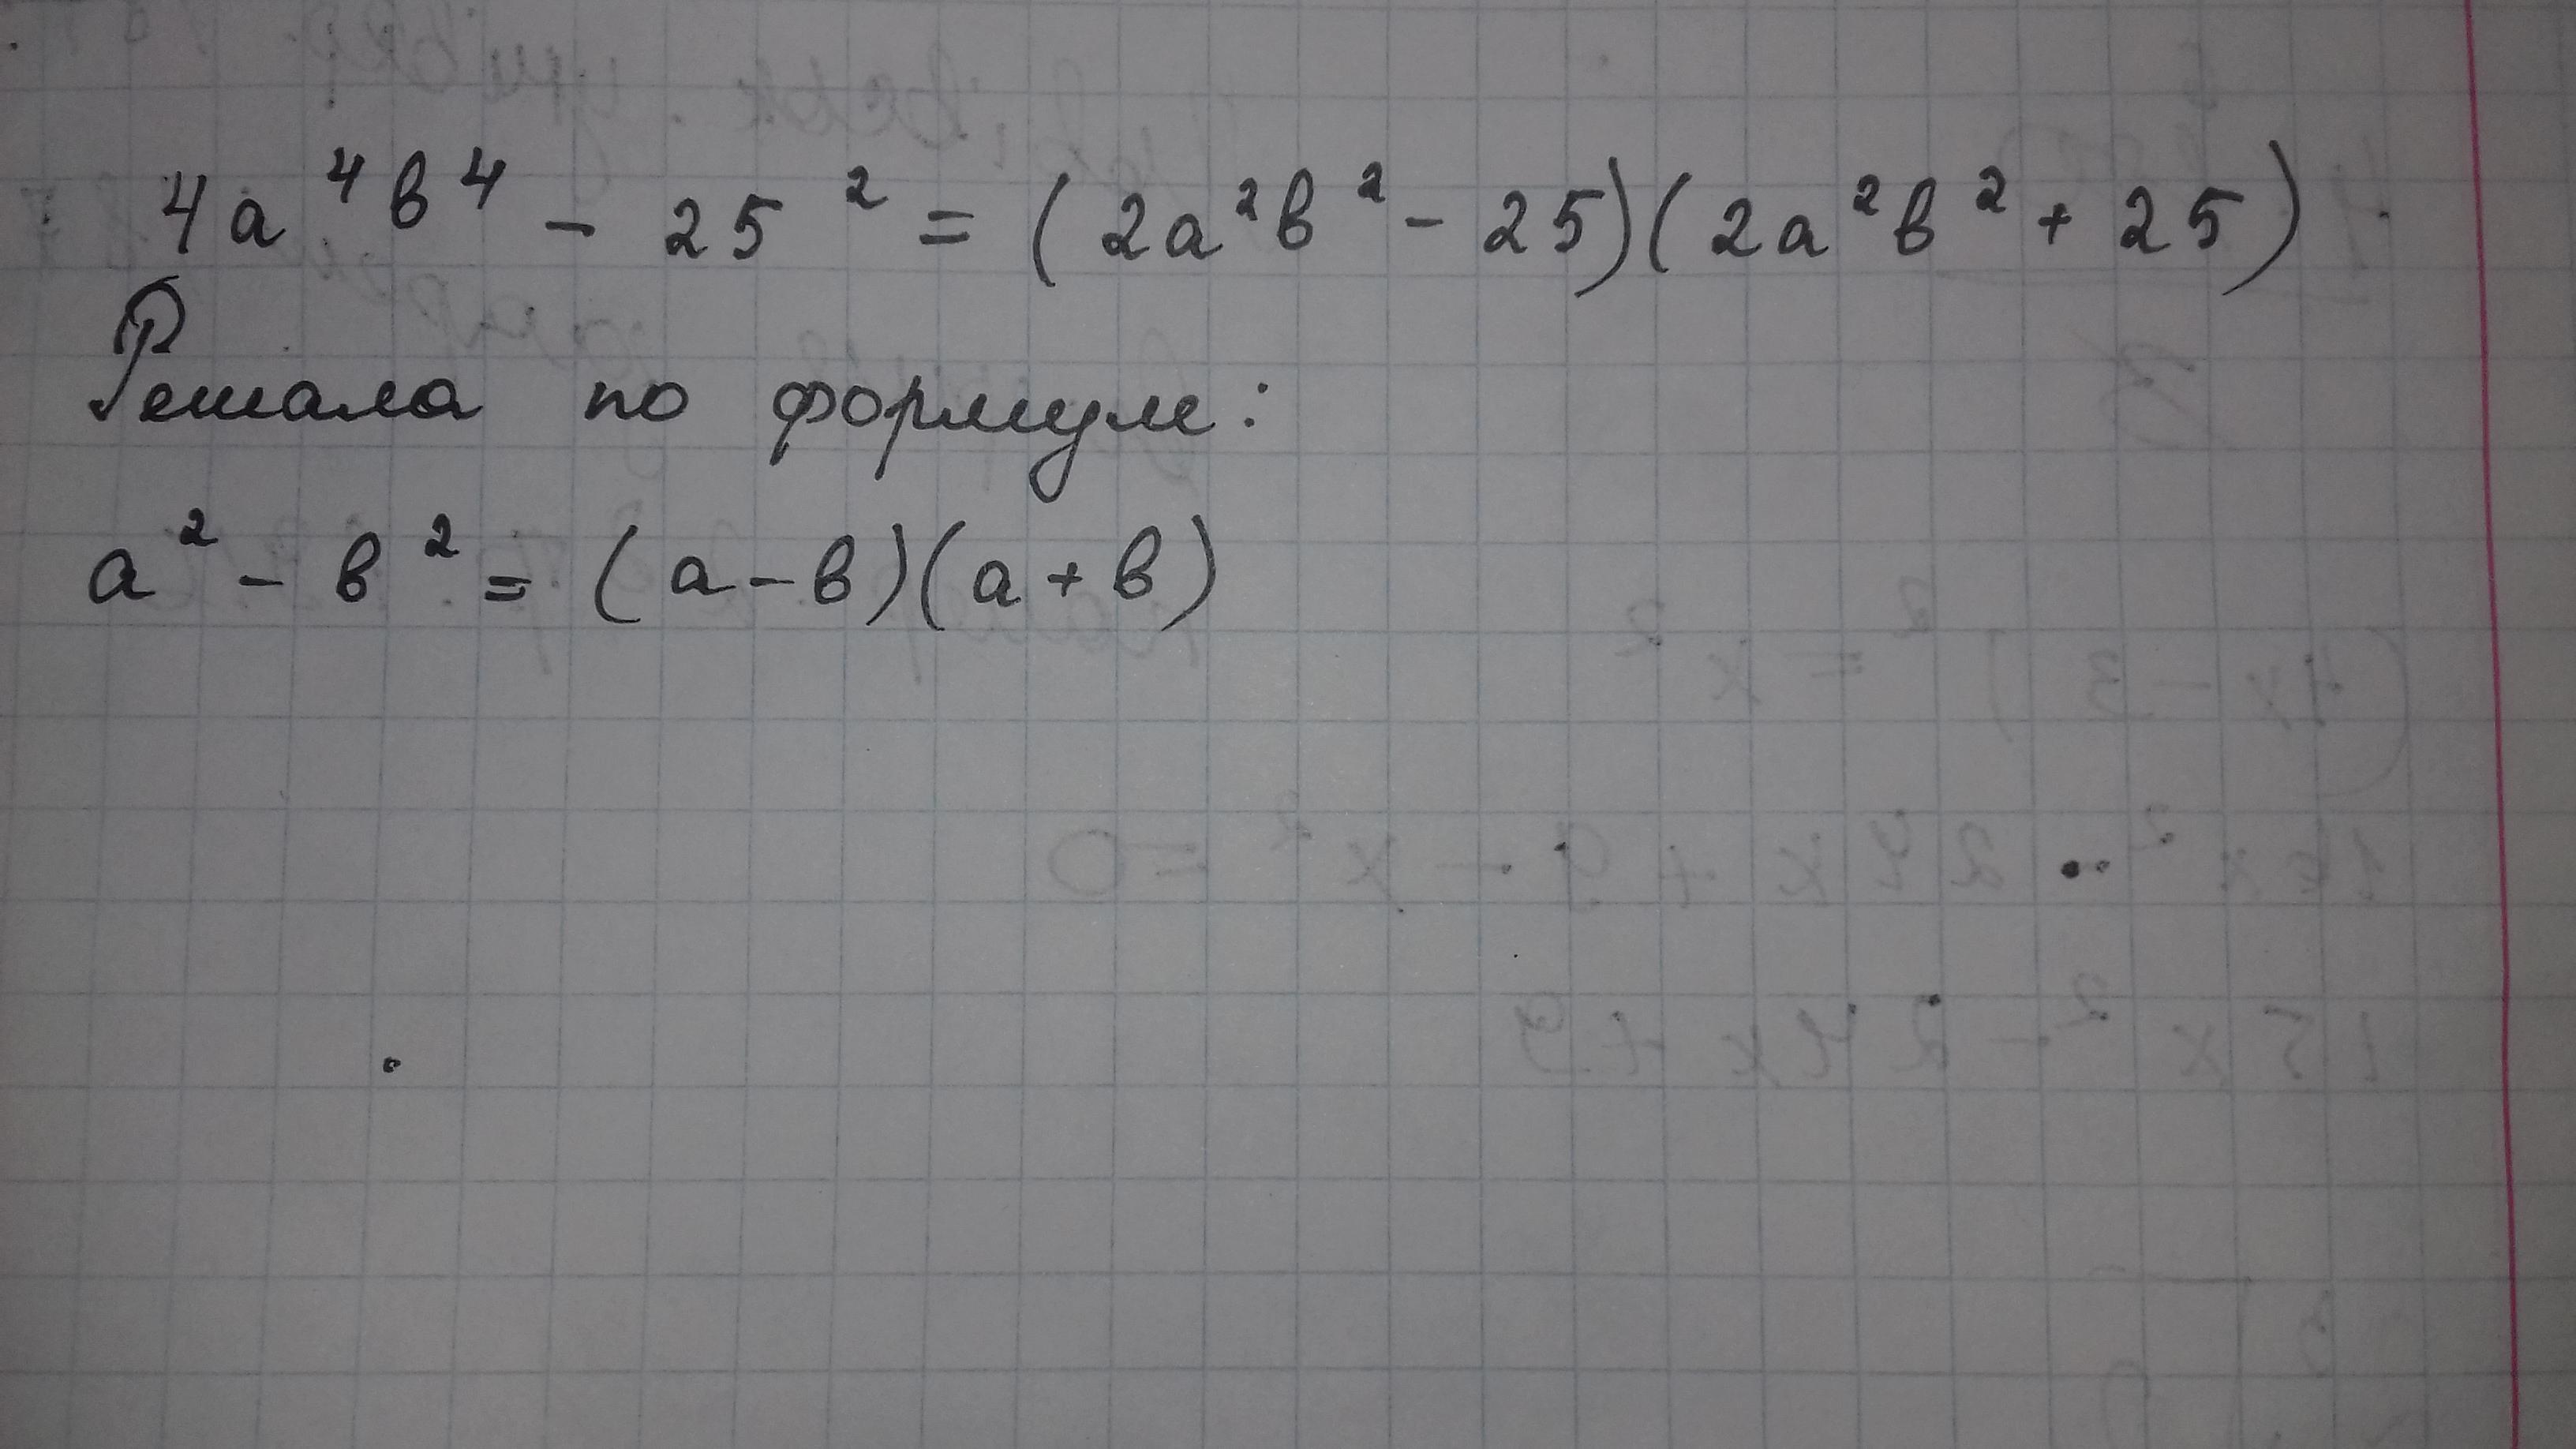 4a⁴b⁴ - 25² = (2a²b² - 25)(2a²b² + 25)
Решала по формуле:
a² - b² = (a - b)(a + b)